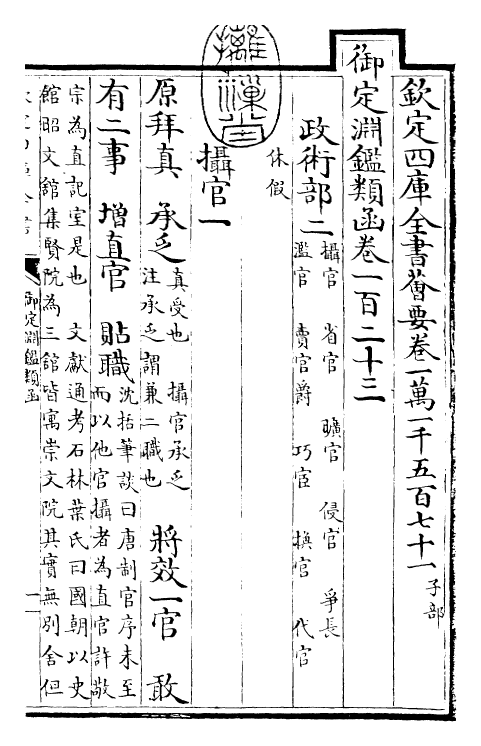 欽定四庫全書薈要卷一萬一千五百七十一 子部
御定淵鑑類函卷一百二十三
政術部二 攝官 省官 曠官 侵官 爭長
濫官 賣官爵 巧宦 換官 代官
休假
攝官一
原拜真 承乏 真受也 攝官承乏
注承乏謂兼二職也 將效一官 敢
有二事 增直官 貼職 沈括筆談曰唐制官序未至
而以他官攝者為直官許敬
宗為直記室是也 文獻通考石林葉氏曰國朝以史
館昭文館集賢院為三館皆寓崇文院其實無別舍但
御定淵鑑類函
一
摛藻堂